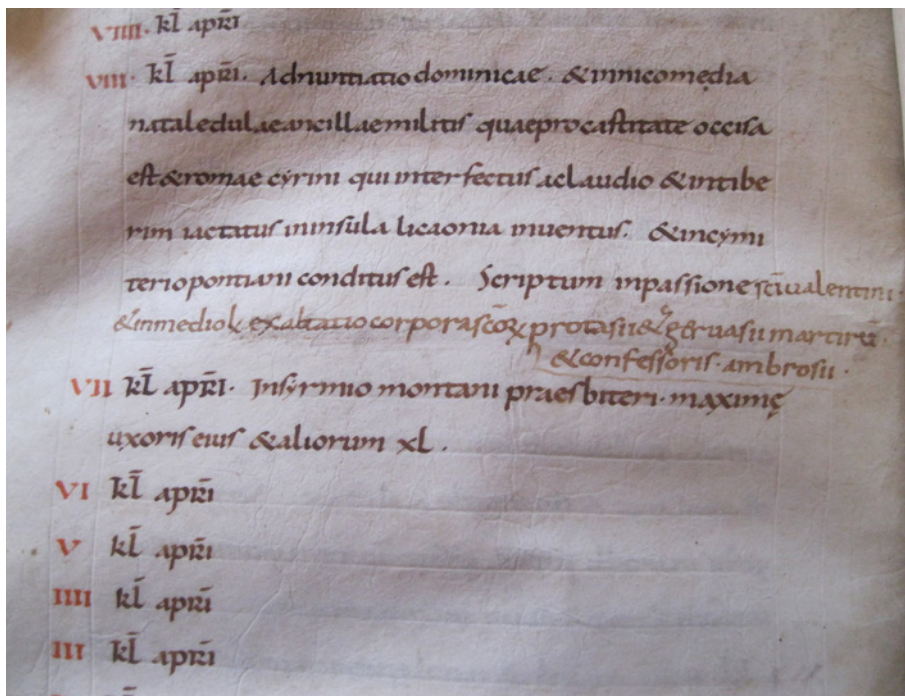 VIIII. kl̄ apr̄i
VIII. kl̄ apr̄i. Adnuntiatio dominicae. &innicomędia
nataledulaeancillaemilitis quaeprocastitate occisa
est&romae cyrini qui interfectus aclaudio &intibe
rim iactatus ininsula licaonia inuentus. &incymi
teriopontiani conditus est. Scriptum inpassione sc̄iualentini.
&inmediol exaltatio corpora sc̄oꝝ protasii& geruasii martirū.
&confessoris. ambrosii.
VII kl̄ apr̄i. Insyrmio montani praesbiteri. maximę
uxoris eius &aliorum xl.
VI kl̄ apr̄i
V kl̄ apr̄i
IIII kl̄ apr̄i
III kl̄ apr̄i